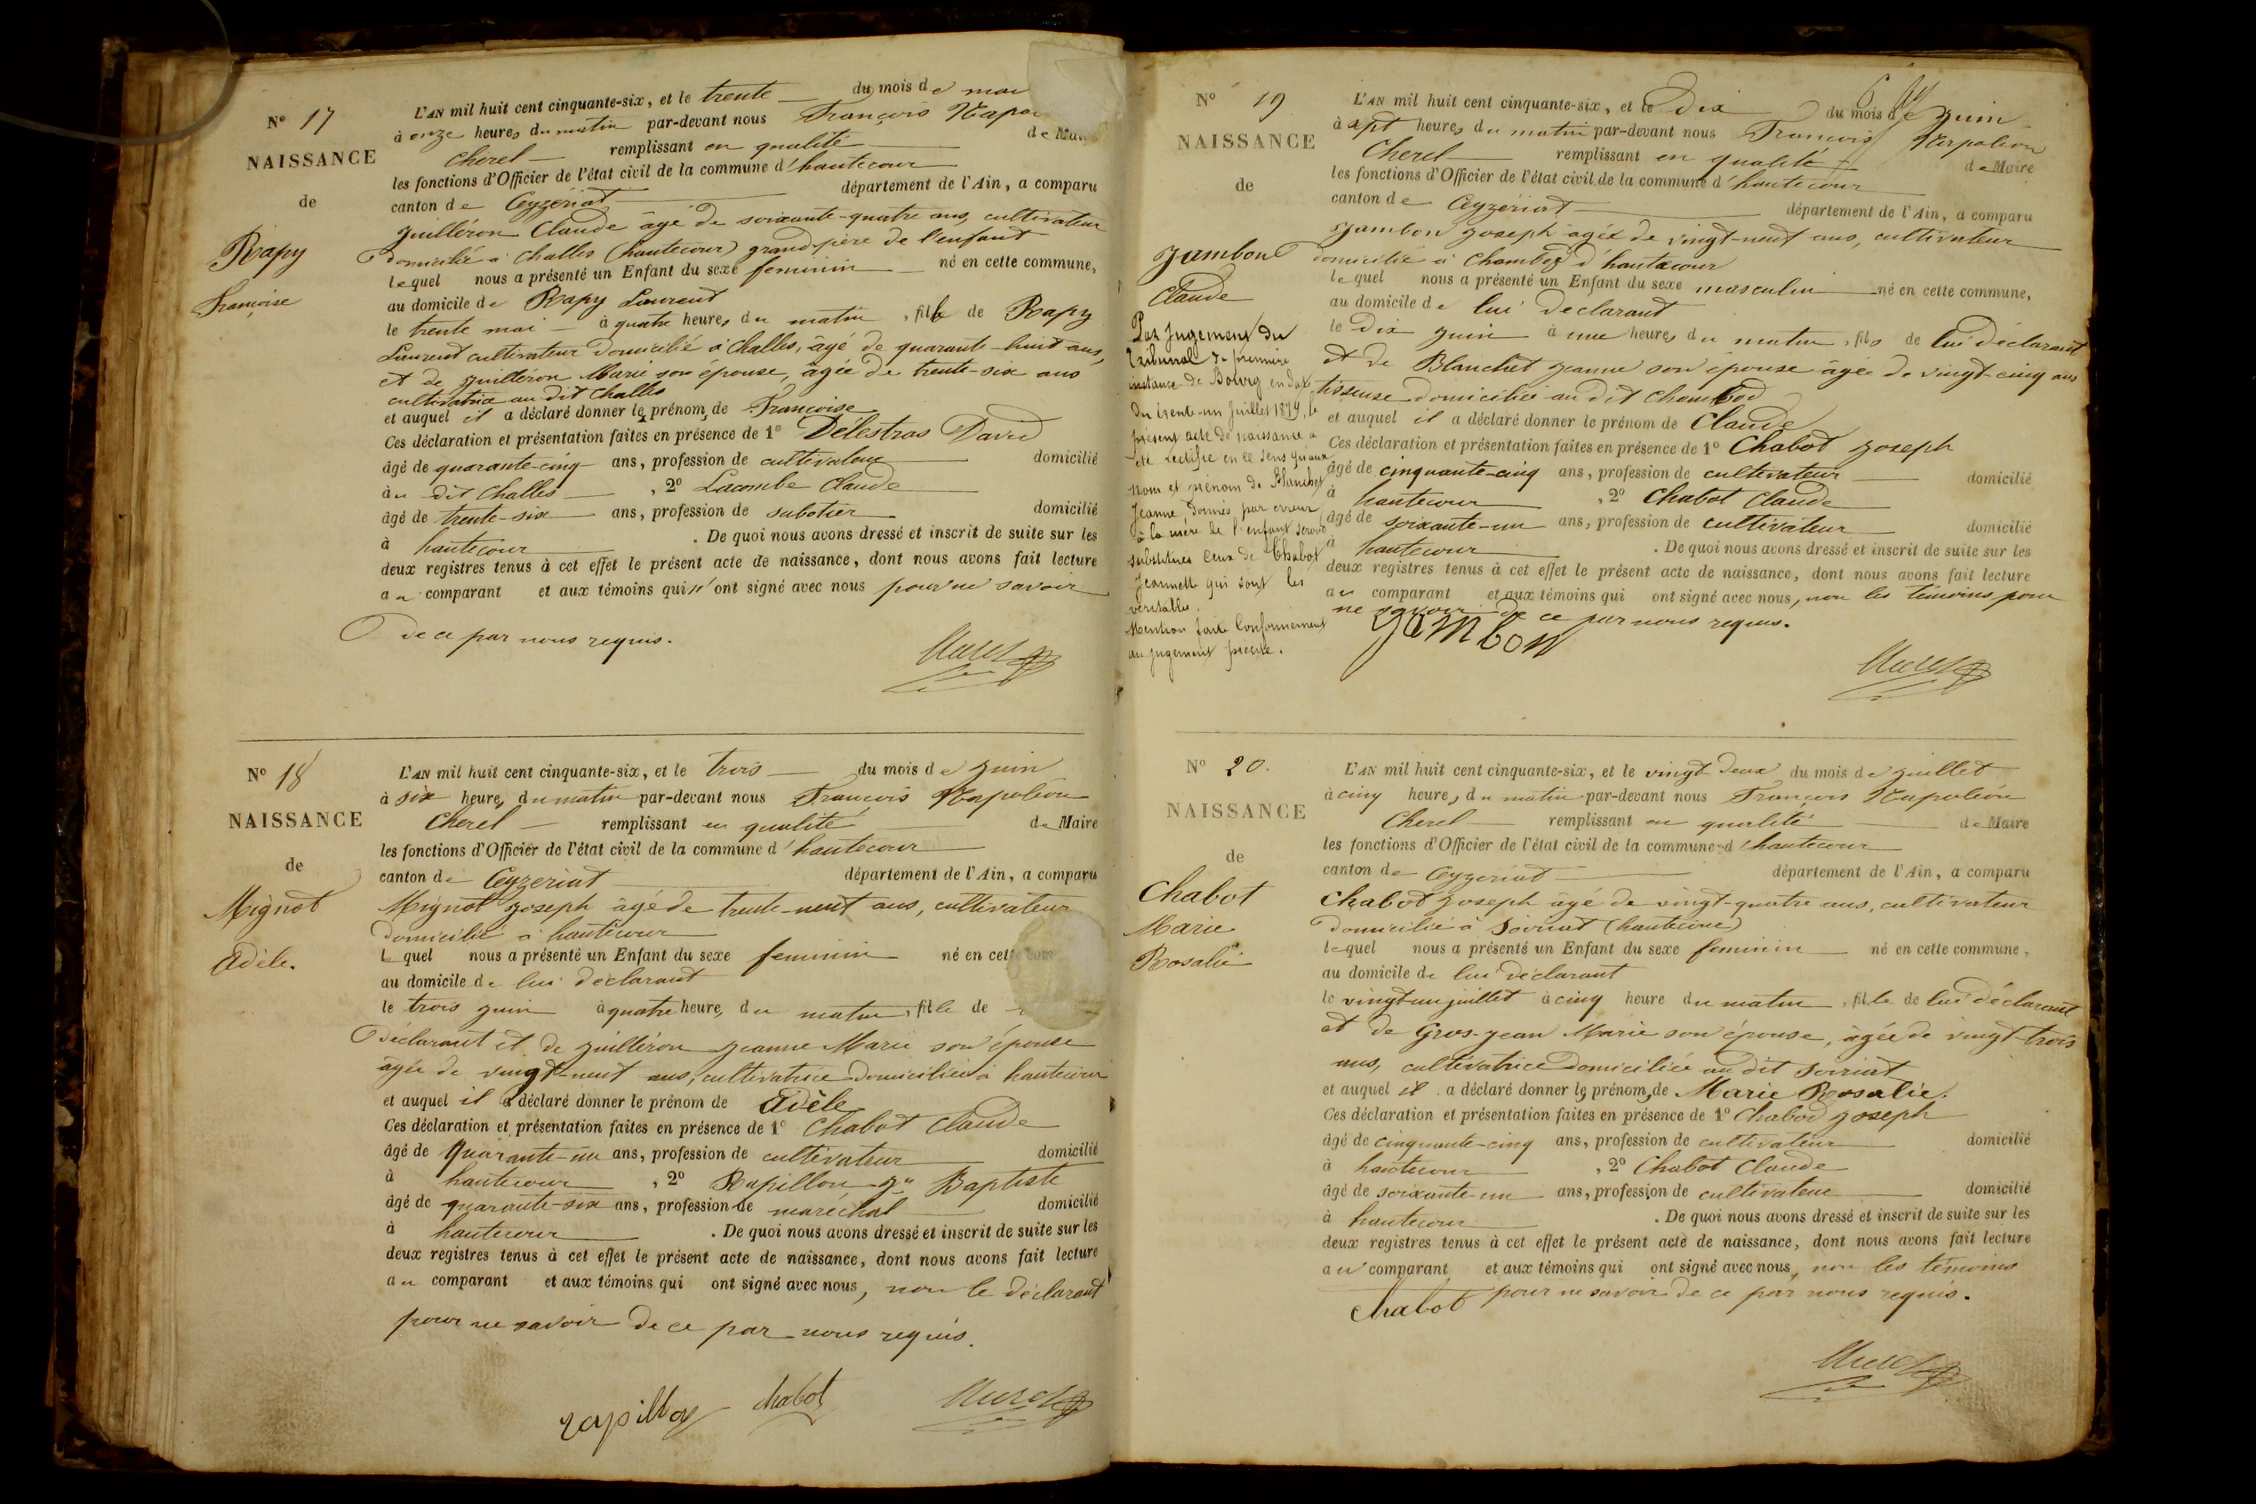 N° 17
NAISSANCE
de
Rapy
Françoise
L'AN mil huit cent cinquante-six, et le trente du mois de mai
à onze heures du matin par-devant nous François Napo
Cherel remplissant en qualité de Maire
les fonctions d'Officier de l'état civil de la commune d'hautecour
canton de Ceyzériat département de l'Ain, a comparu
Guilléron Claude âgé de soixante-quatre ans, cultivateur
domicilié à Challes (hautecour) grand-père de l'enfant
lequel nous a présenté un Enfant du sexe feminin né en cette commune,
au domicile de Rapy Laurent
le trente mai à quatre heures du matin, fille de Rapy
Laurent cultivateur domicilié à Challes, âgé de quarante-huit ans,
et de Guilléron Marie son épouse, âgée de trente-six ans
cultivatrice au dit Challes
et auquel il a déclaré donner le prénom de Françoise
Ces déclaration et présentation faites en présence de 1° Délestras David
âgé de quarante-cinq ans, profession de cultivateur domicilié
au dit Challes, 2° Lacombe Claude
âgé de trente-six ans, profession de sabotier domicilié
à hautecour. De quoi nous avons dressé et inscrit de suite sur les
deux registres tenus à cet effet le présent acte de naissance, dont nous avons fait lecture
au comparant et aux témoins qui n'ont signé avec nous pour ne savoir
de ce par nous requis.
N° 18
NAISSANCE
de
Mignot
Adèle.
L'AN mil huit cent cinquante-six, et le trois du mois de juin
à six heures du matin par-devant nous François Napoléon
Cherel remplissant en qualité de Maire
les fonctions d'Officier de l'état civil de la commune d'hautecour
canton de Ceyzeriat département de l'Ain, a comparu
Mignot Joseph âgé de trente-neuf ans, cultivateur
domicilié à hautecour
lequel nous a présenté un Enfant du sexe feminin né en cette com
au domicile de lui déclarant
le trois juin à quatre heures du matin, fille de
déclarant et de Guilléron Jeanne Marie son épouse
âgée de vingt-neuf ans, cultivatrice domiciliée à hautecour
et auquel il a déclaré donner le prénom de Adèle
Ces déclaration et présentation faites en présence de 1° Chabot Claude
âgé de quarante-un ans, profession de cultivateur domicilié
à hautecour, 2° Rapillon Jn Baptiste
âgé de quarante-six ans, profession de maréchal domicilié
à hautecour. De quoi nous avons dressé et inscrit de suite sur les
deux registres tenus à cet effet le présent acte de naissance, dont nous avons fait lecture
au comparant et aux témoins qui ont signé avec nous, non le déclarant
pour ne savoir de ce par nous requis.
rapillon chabot
N° 19
NAISSANCE
de
Jambon
Claude
Par Jugement du
Tribunal de première
instance de Bourg en date
du trente-un Juillet 1879, le
présent acte de naissance a
été rectifié en ce sens qu'aux
nom et prénom de Blanchet
Jeanne, donnés par erreur
à la mère de l'enfant seront
substitués ceux de Chabot
Jeannette qui sont les
véritables.
Mention faite Conformément
au jugement précité.
L'AN mil huit cent cinquante-six, et le dix du mois de juin
à sept heures du matin par-devant nous François Napoléon
Cherel remplissant en qualité de Maire
les fonctions d'Officier de l'état civil de la commune d'hautecour
canton de Ceyzériat département de l'Ain, a comparu
Jambon Joseph âgé de vingt-neuf ans, cultivateur
domicilié à Chambod d'hautecour
lequel nous a présenté un Enfant du sexe masculin né en cette commune,
au domicile de lui déclarant
le dix juin à une heures du matin, fils de lui déclarant
et de Blanchet Jeanne son épouse âgée de vingt-cinq ans
tisseuse domiciliée au dit Chambod
et auquel il a déclaré donner le prénom de Claude
Ces déclaration et présentation faites en présence de 1° Chabot Joseph
âgé de cinquante-cinq ans, profession de cultivateur domicilié
à hautecour, 2° Chabot Claude
âgé de soixante-un ans, profession de cultivateur domicilié
à hautecour. De quoi nous avons dressé et inscrit de suite sur les
deux registres tenus à cet effet le présent acte de naissance, dont nous avons fait lecture
au comparant et aux témoins qui ont signé avec nous, non les témoins pour
ne savoir de ce par nous requis.
Jambon
N° 20.
NAISSANCE
de
Chabot
Marie
Rosalie
L'AN mil huit cent cinquante-six, et le vingt deux du mois de juillet
à cinq heures du matin par-devant nous François Napoléon
Cherel remplissant en qualité de Maire
les fonctions d'Officier de l'état civil de la commune d'hautecour
canton de Ceyzeriat département de l'Ain, a comparu
Chabot Joseph âgé de vingt-quatre ans, cultivateur
domicilié à Soiriat (hautecour)
lequel nous a présenté un Enfant du sexe feminin né en cette commune,
au domicile de lui déclarant
le vingt un juillet à cinq heure du matin, fille de lui déclarant
et de Gros-Jean Marie son épouse, âgée de vingt-trois
ans, cultivatrice domiciliée au dit Soiriat
et auquel il a déclaré donner les prénoms de Marie Rosalie.
Ces déclaration et présentation faites en présence de 1° Chabod Joseph
âgé de cinquante-cinq ans, profession de cultivateur domicilié
à hautecour, 2° Chabot Claude
âgé de soixante-un ans, profession de cultivateur domicilié
à hautecour. De quoi nous avons dressé et inscrit de suite sur les
deux registres tenus à cet effet le présent acte de naissance, dont nous avons fait lecture
au comparant et aux témoins qui ont signé avec nous, non les témoins
pour ne savoir de ce par nous requis.
chabot